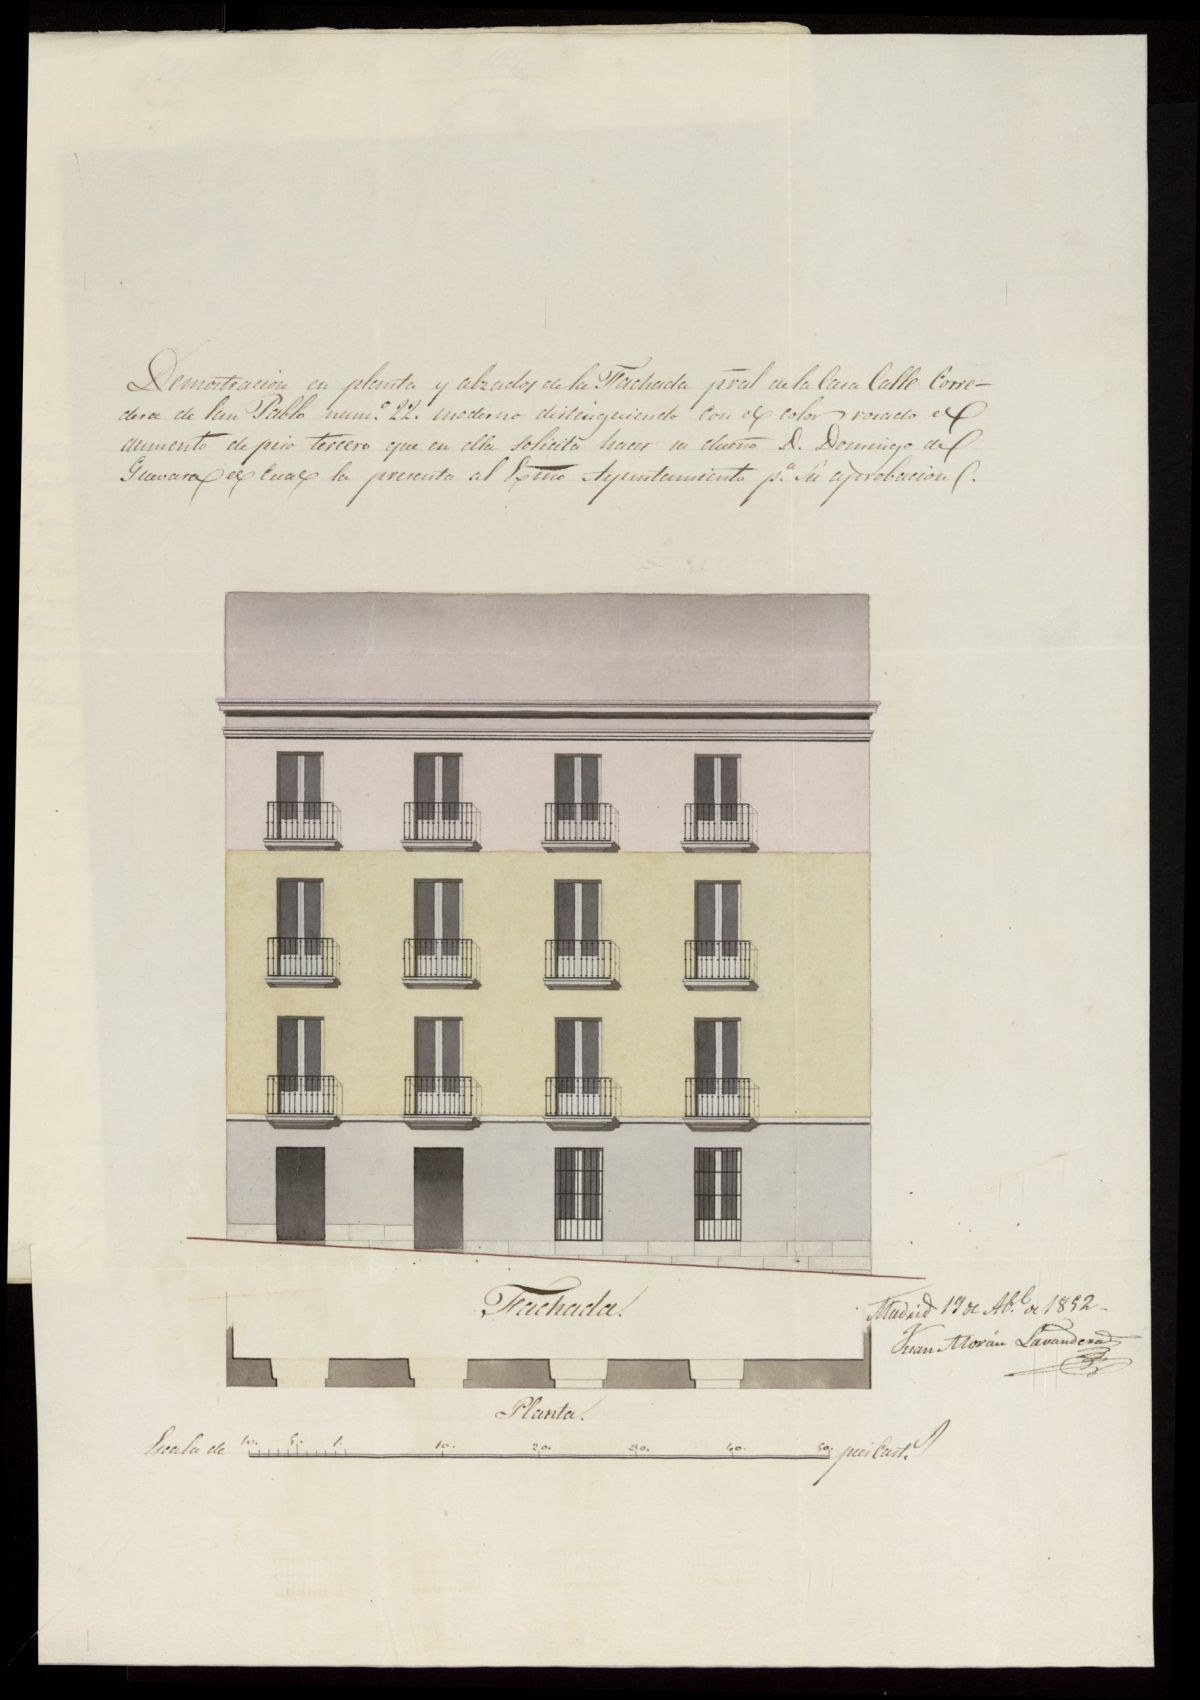 Demostracion en planta y alzado, de la Fachada pral de la Casa Calle Corre-
dera de San Pablo num.º 22. moderno distinguiendo con el color rosado el
aumento de piso tercero que en ella solicita hacer su dueño D. Domingo de
Guevara el cual la presenta al Exmo Ayuntamiento p.ª su aprobacion.
Fachada.
Madrid 19 de Ab.l de 1852
Juan Morán Lavandera
Planta.
Escala de 10. 5. 1. 10. 20. 30. 40. 50. pies Cast.s